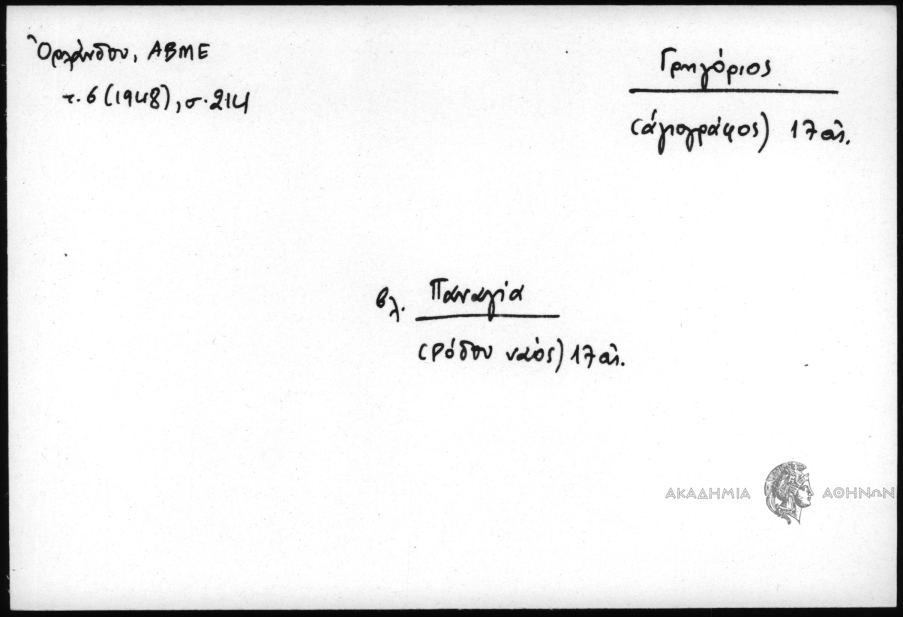 Ὀρλάνδου, ΑΒΜΕ
τ. 6 (1948), σ. 214
Γρηγόριος
(ἁγιογράφος) 17 αἰ.
βλ. Παναγία
(Ρόδου ναός) 17 αἰ.
ΑΚΑΔΗΜΙΑ ΑΘΗΝΩΝ